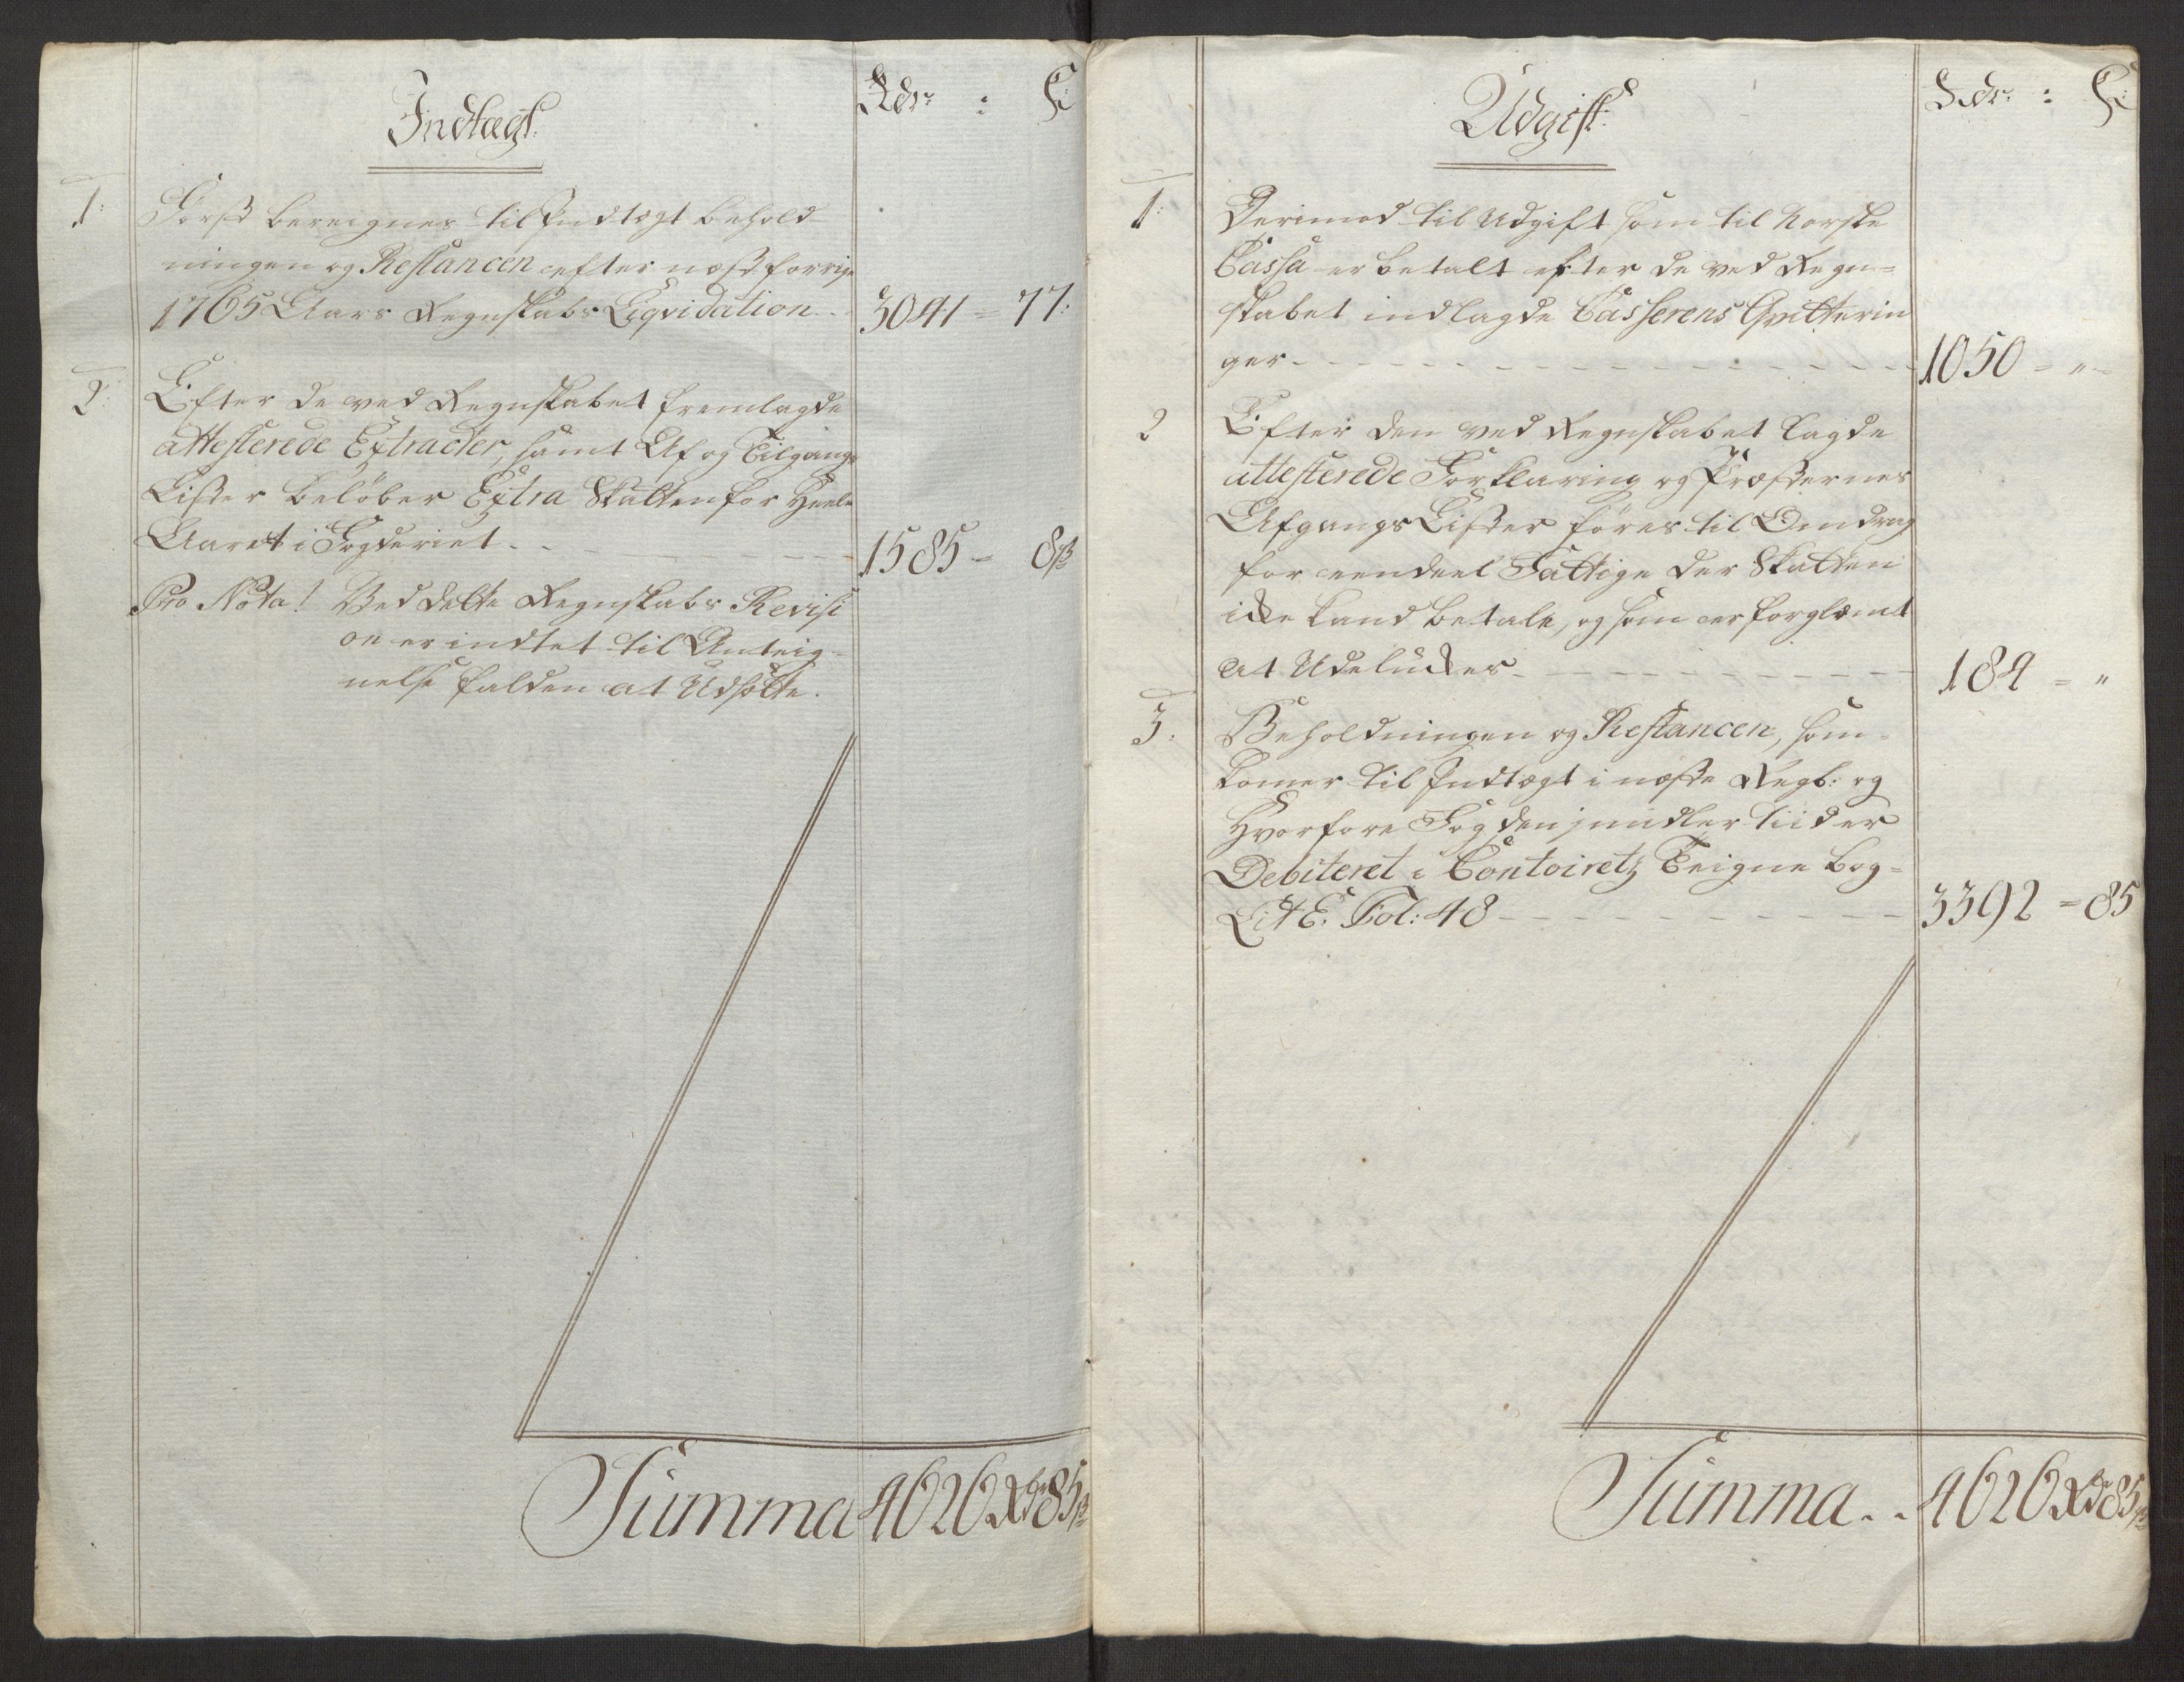 Indtægt.
Rdr. : ß
1: Først beregnes til Indtægt behold
ningen og Restancen efter nest forrige
1765 Aars Regnskabs Liqvidation . . 3041 = 77:
2: Efter de ved Regnskabet fremlagde
attesterede Extracter, samt Af og Tilgangs
Lister beløber Extra Skatten for Heele
Aaret i Fogderiet . . 1585 - 8 ß
Pro Nota! Ved dette Regnskabs Revisi
on er indtet til Anteig-
nelse falden at Udsætte.
Summa 4626 Rd 85 ß
Udgift.
Rdr. : ß
1: Derimod til Udgift som til Norske
Cassa er betalt efter de ved Regn=
skabet indlagde Casserens Qvitterin
ger - - - 1050 = " -
2 Efter den ved Regnskabet lagde
attesterede Forklaring og Præsternes
Afgangs Lister føres til Omdrag
for eendeel Fattige der Skatten
icke kand betale, og som er forglemt
at Udelucker - - - 184 = "
3. Beholdningen og Restancen, som
komer til Indtægt i næste Regb: og
Hvorfore Fogden imidler tiid er
Debiteret i Contoiretz Teigne bog=
Lit E. Fol: 48 - - - 3392 = 85
Summa . . 4626 Rd 85 ß